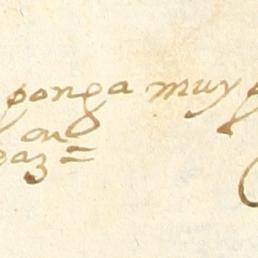 ponga muy
on
paz =